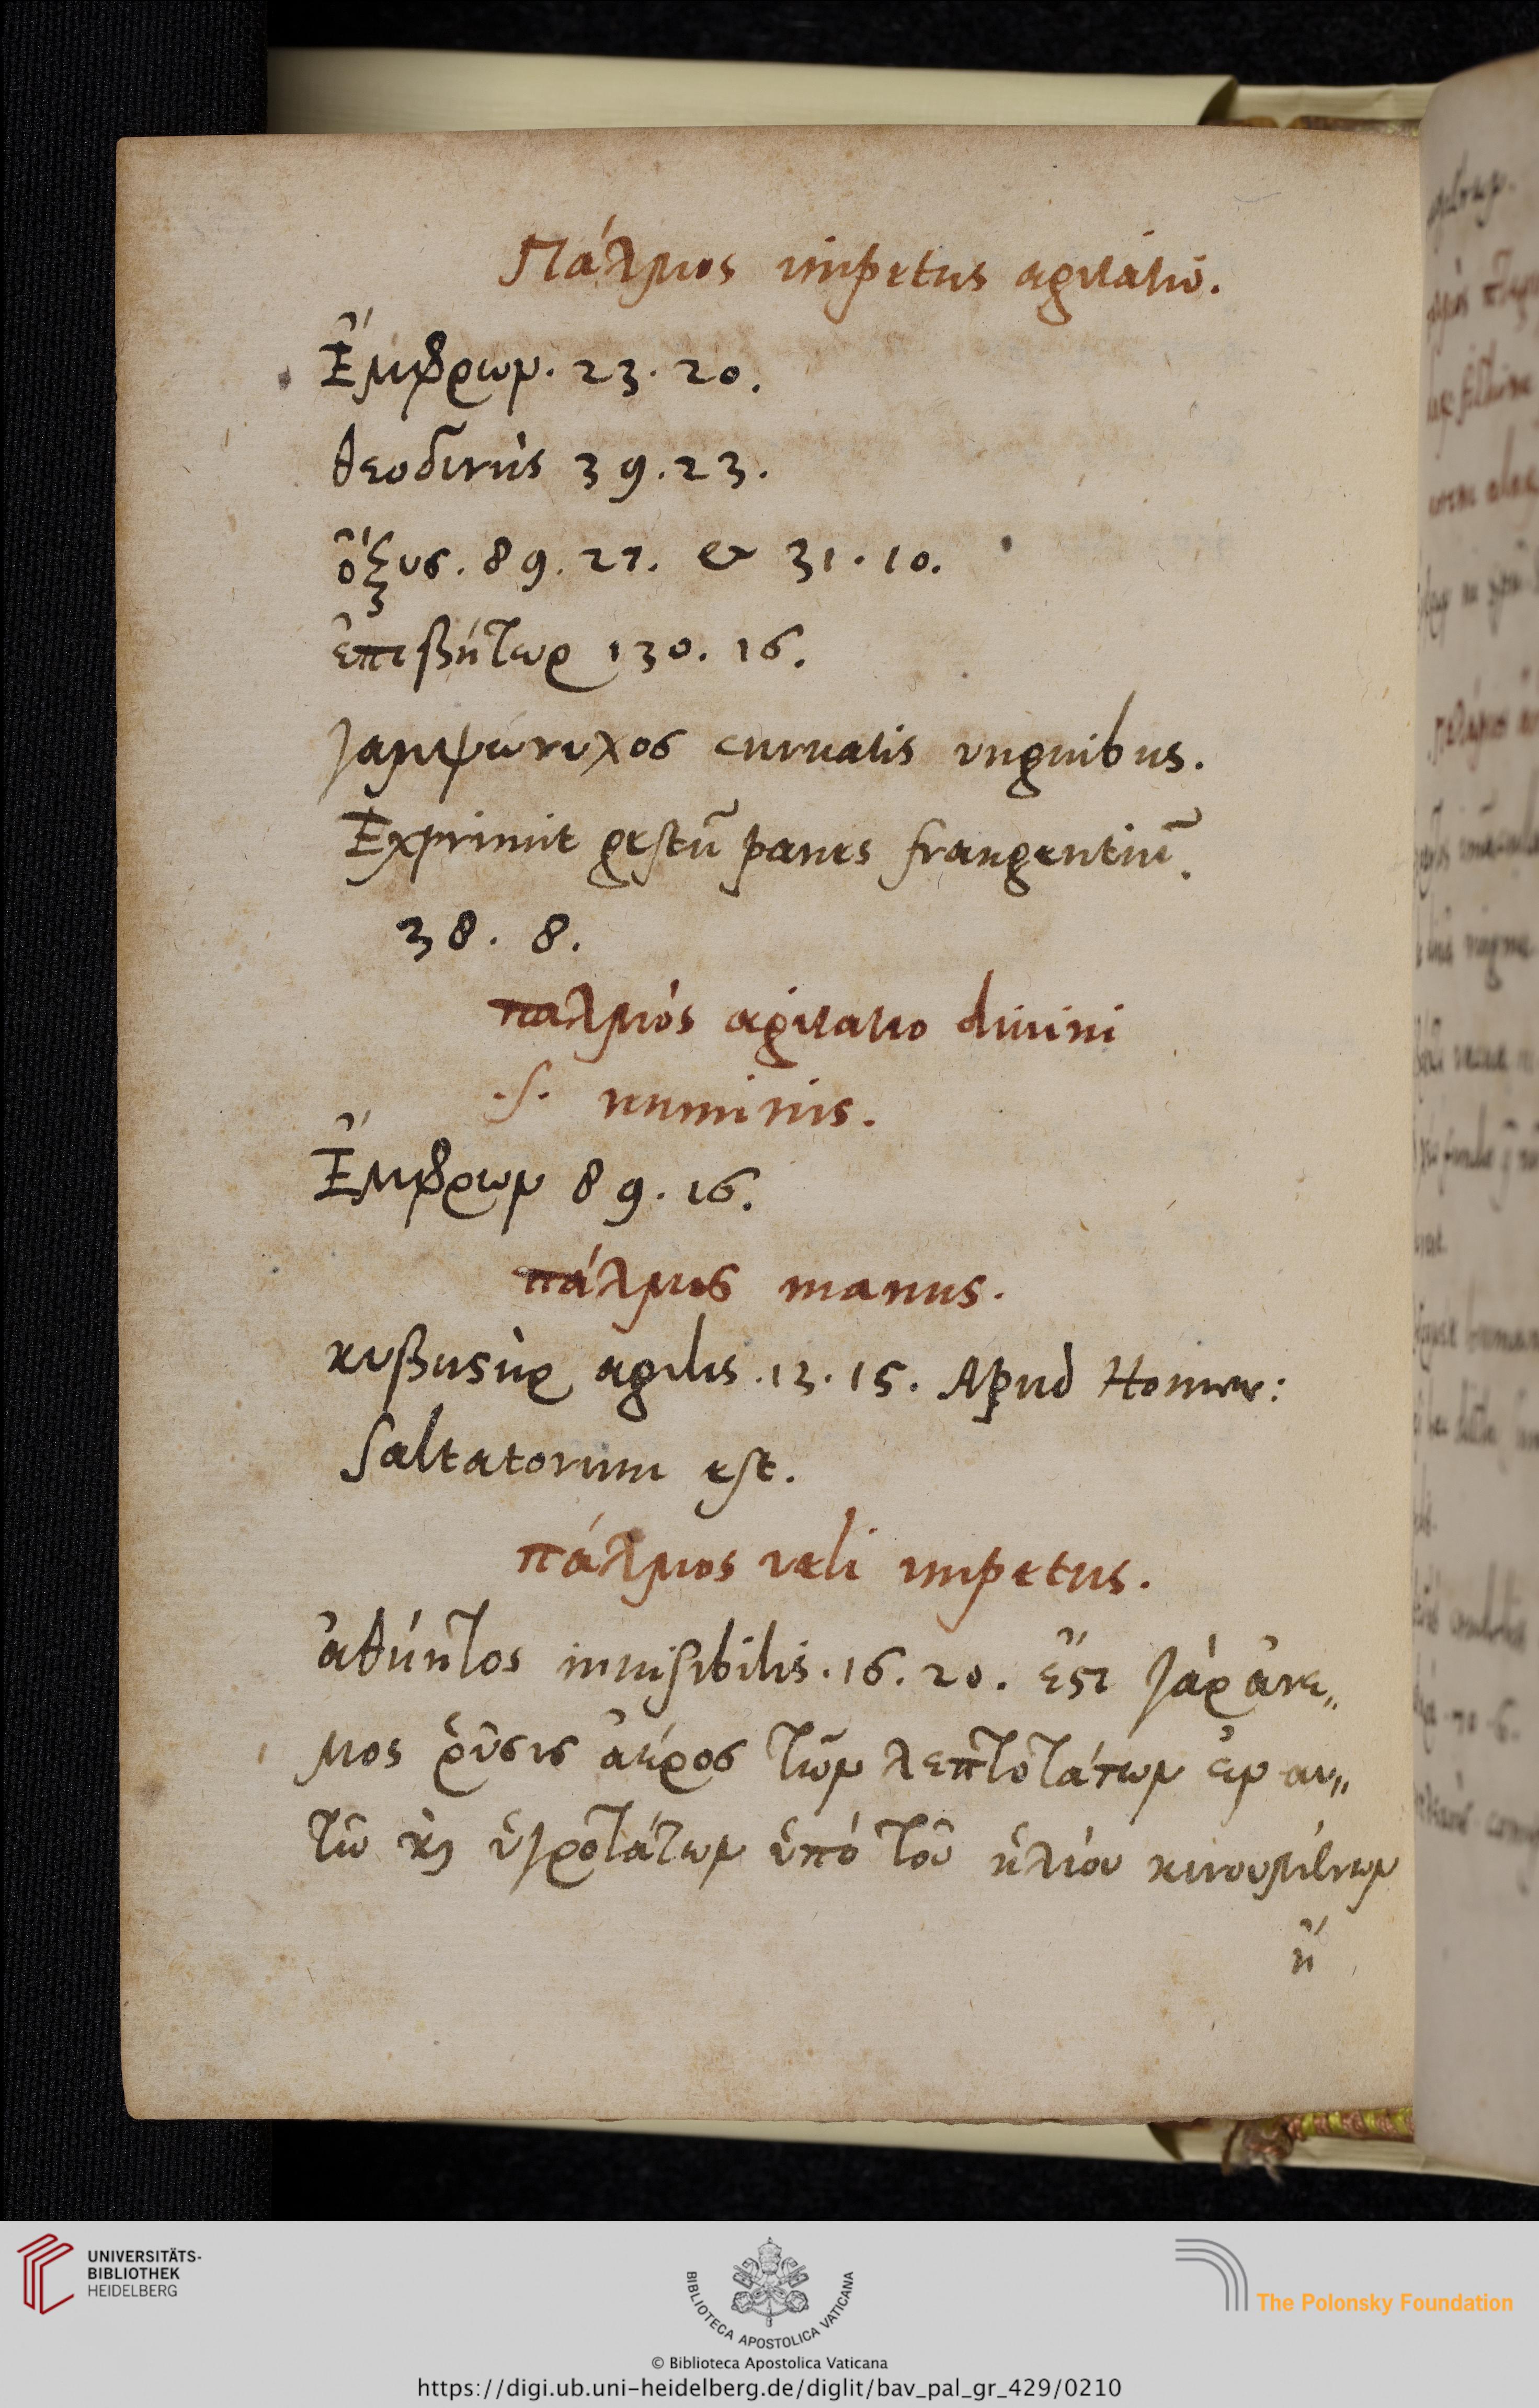 Πάλμος impetus agitatiō.
Ἔμφρων. 23. 20.
θεοδινὴς 39. 23.
ὄξυς. 89. 27. & 31. 10.
ἐπιβήτωρ 130. 16.
γαμψώνυχος curuatis vnguibus.
Exprimit gestū panes frangentiū.
38. 8.
παλμός agitatio diuini
.s. numinis.
Ἔμφρων 89. 16.
πάλμος manus.
κυβιστὴρ agilis. 13. 15. Apud Homer:
saltatorum est.
πάλμος veli impetus.
ἀθήητος inuisibilis. 16. 20. ἔστι γάρ ἄνε„
μος ῥῦσις ἀέρος τῶν λεπτοτάτων ἐν αυ„
τῶ καὶ ὑγροτάτων ὑπό τοῦ ἡλίου κινουμένων
ἤ
UNIVERSITÄTS-
BIBLIOTHEK
HEIDELBERG
BIBLIOTECA APOSTOLICA VATICANA
The Polonsky Foundation
© Biblioteca Apostolica Vaticana
https://digi.ub.uni-heidelberg.de/diglit/bav_pal_gr_429/0210